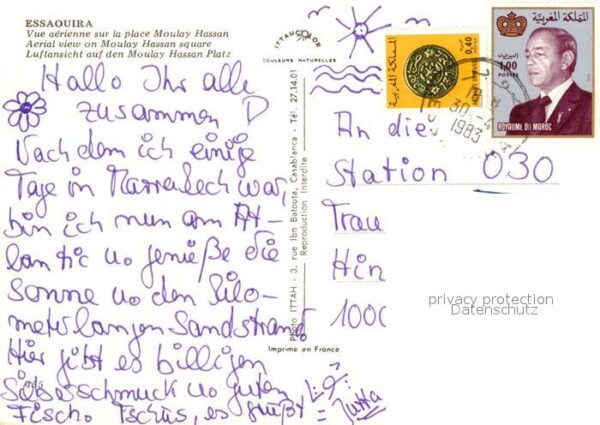 ESSAOUIRA
Vue aérienne sur la place Moulay Hassan
Aerial view on Moulay Hassan square
Luftansicht auf den Moulay Hassan Platz
Hallo Ihr alle
zusammen
Nach dem ich einige
Tage in Marrakech war
bin ich nun am At-
lantic u genieße die
Sonne u den kilo-
meterlangen Sandstrand
Hier gibt es billigen
Silberschmuck u guten
Fisch. Tschüs, es grüßt
= Jutta
ITTAH COLOR
COULEURS NATURELLES
Photo ITTAH - 3, rue Ibn Batouta, Casablanca - Tél. 27.14.01
Reproduction Interdite
Imprimé en France
المملكة المغربية
البريد
0,40
المملكة المغربية
البريد
1,00
POSTES
ROYAUME DU MAROC
30-4
1983
An die
Station 030
Trau
Hin
1000
privacy protection
Datenschutz